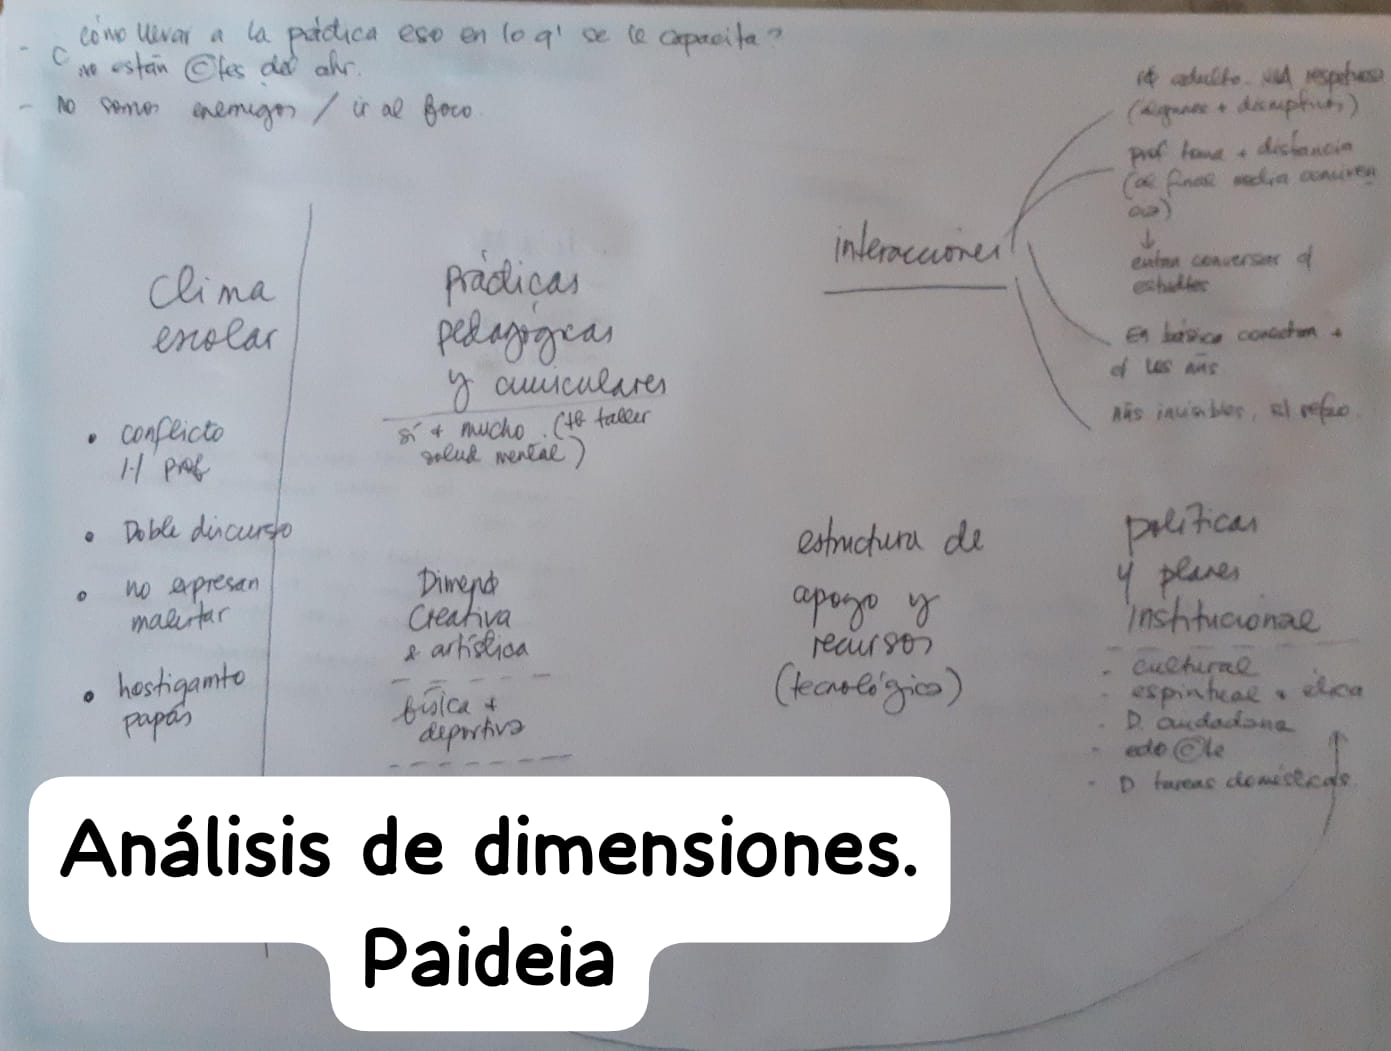 - cómo llevar a la práctica eso en lo q' se le capacita?
no están ©tes del ahr.
- No somos enemigos / ir al foco.
Clima
escolar
• conflicto
H prof
• Doble discurso
• no expresan
malestar
• hostigamto
papás
prácticas
pedagógicas
y curriculares
sí + mucho. (tb taller
salud mental)
Creativa
& artística
física +
deportiva
interacciones
adulto respetuoso
(algunos + disruptivos)
prof toma + distancia
(al final media conviven
cia)
↓
evitan conversar
En básica conectan +
invisibles,
estructura de
apoyo y
recursos
(tecnológico)
políticas
y planes
institucional
- cultural
- espiritual + ética
- D. ciudadana
- edo ©te
- D tareas domésticas.
Análisis de dimensiones.
Paideia